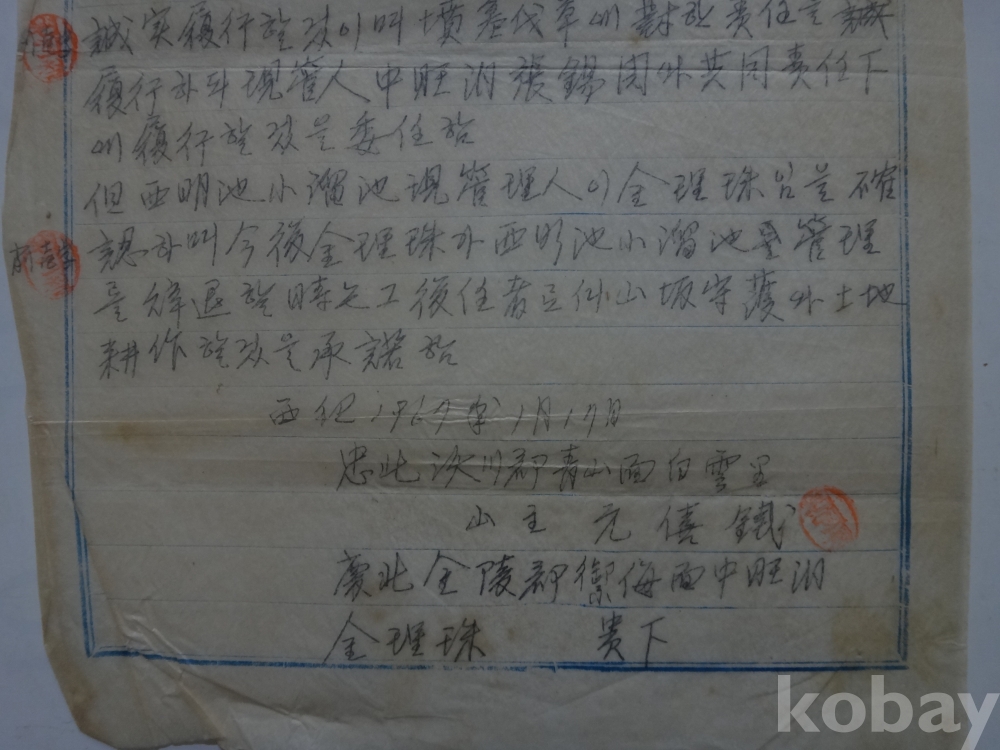 誠実履行할것이며 墳墓伐草에 對한 責任을 誠
履行하되 現管人 中旺洞 張錫 外 共同責任下
에 履行할것을 委任함
但 西明池 小溜池 現管理人이 金理珠임을 確
認하며 今後 金理珠가 西明池 小溜池를 管理
를 解退할時는 그 後任者로서 山坂守護와 土地
耕作할것을 承諾함
西紀 1967年 1月 17日
忠北 沃川郡 青山面 白雲里
山主 元僖鐵
慶北 金陵郡 禦侮面 中旺洞
金理珠 貴下
kobay